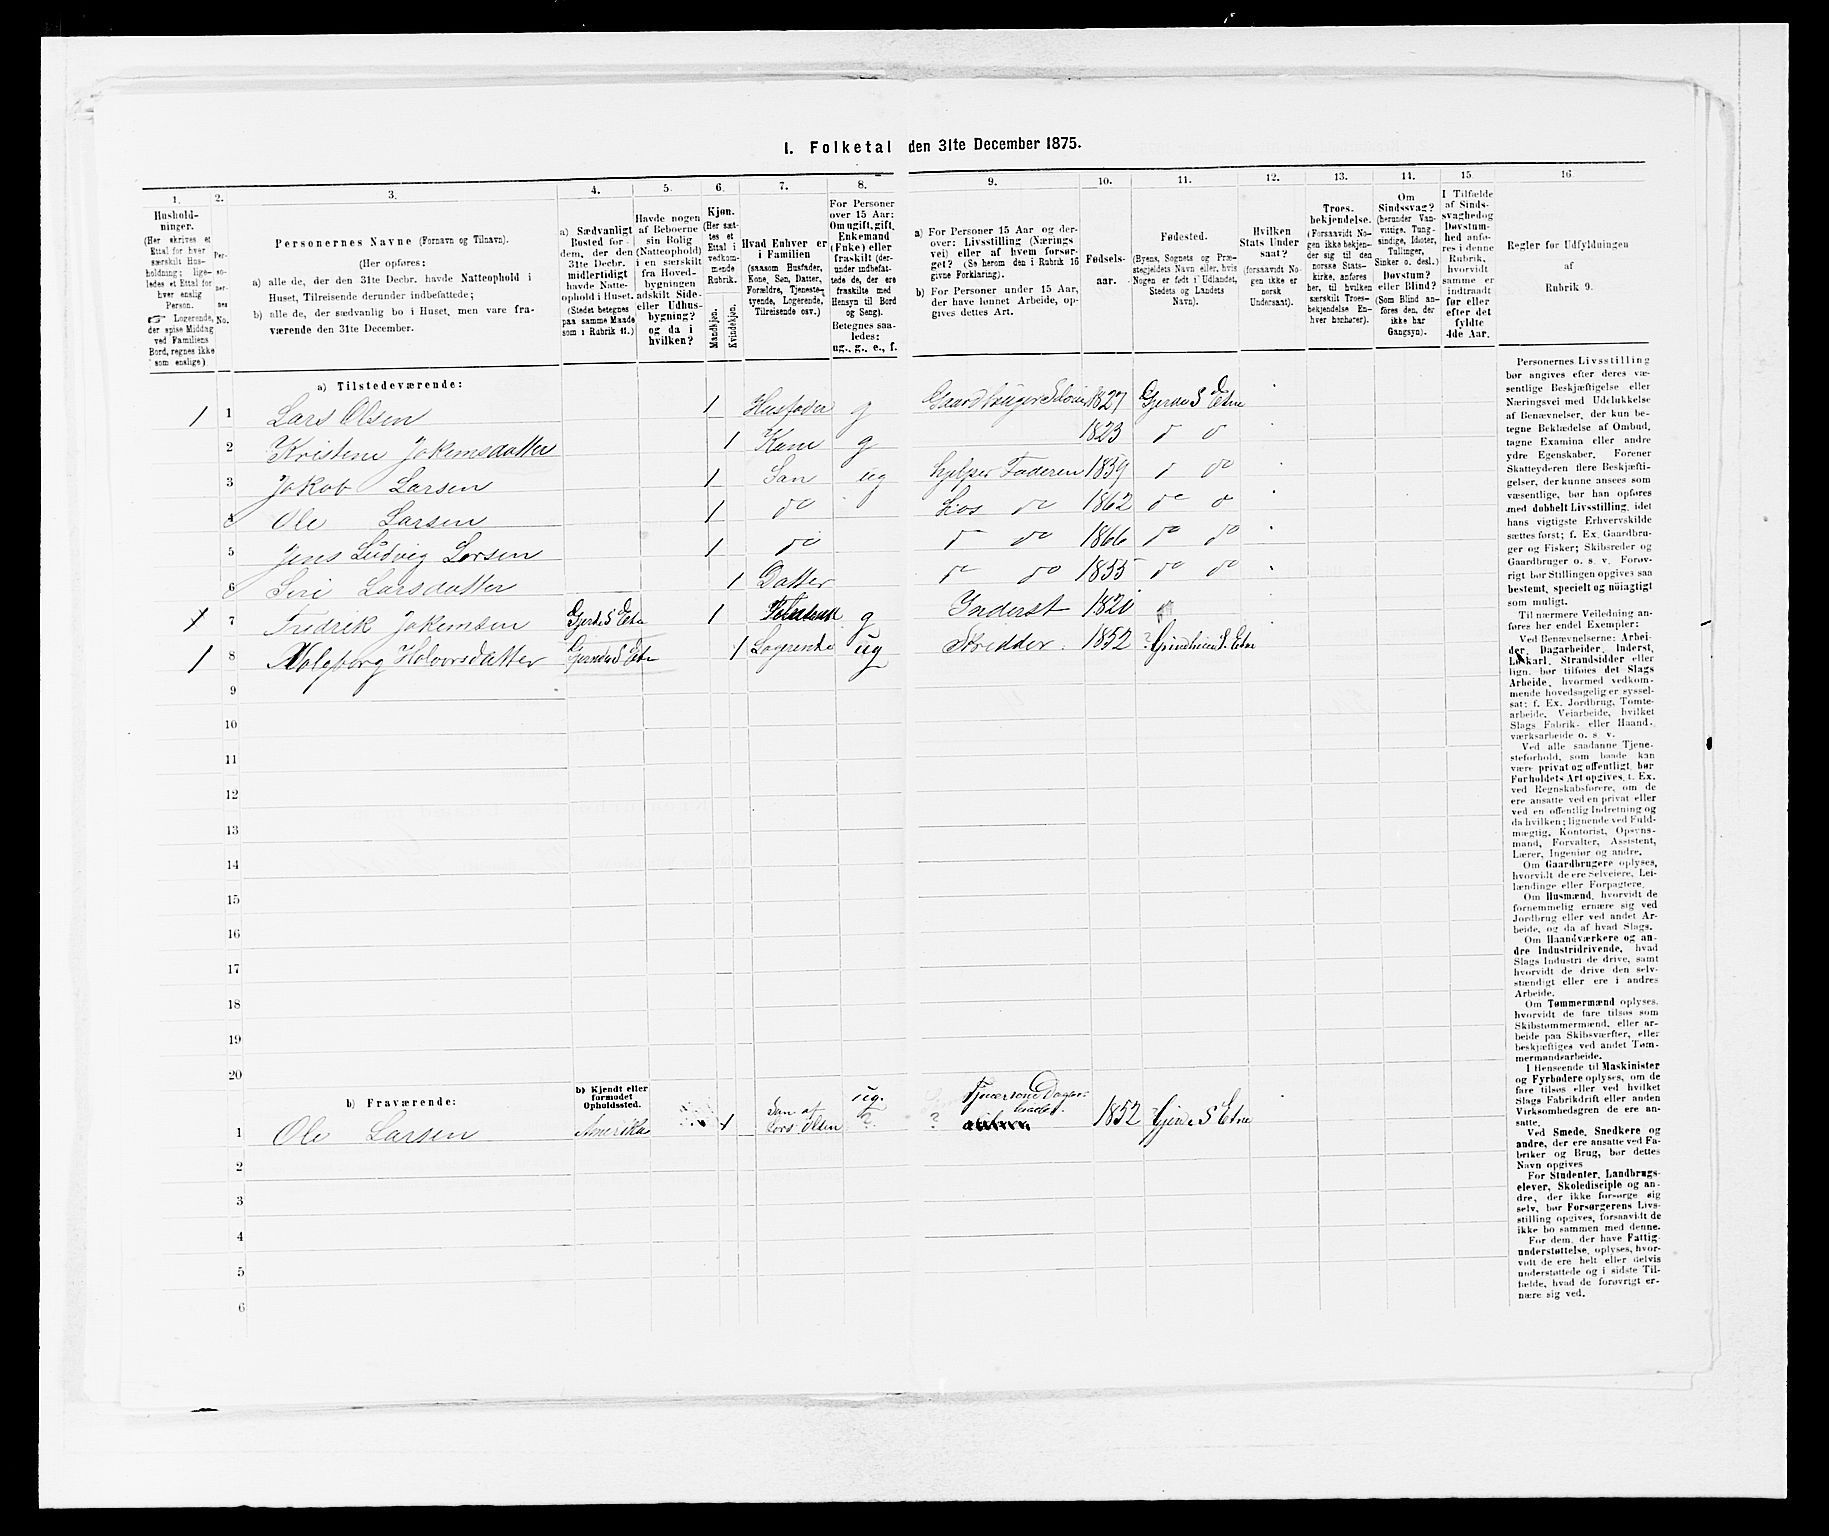 I. Folketal den 31te December 1875.
1. 2. 3. 4. 5. 6. 7. 8. 9. 10. 11. 12. 13. 14. 15. 16
Hushold-
ninger.
(Her skrives et
Ettal for hver
særskilt Hus-
holdning; lige-
ledes et Ettal for
hver enslig
Person.
☞ Logerende,
der spise Middag
ved Familiens
Bord, regnes ikke
som enslige)
Per-
so-
ner-
nes
No.
Personernes Navne (Fornavn og Tilnavn).
(Her opføres:
a) alle de, der den 31te Decbr. havde Natteophold i
Huset, Tilreisende derunder indbefattede;
b) alle de, der sædvanlig bo i Huset, men vare fra-
værende den 31te December.
a) Sædvanligt
Bosted for
dem, der den
31te Decbr.
midlertidigt
havde Natte-
ophold i Huset.
(Stedet betegnes
paa samme Maade
som i Rubrik 11.)
Havde nogen
af Beboerne
sin Bolig
(Natteophold)
i en særskilt
fra Hoved-
bygningen
adskilt Side-
eller Udhus-
bygning?
og da i
hvilken?
Kjøn.
(Her sæt-
tes et
Ettal i
vedkom-
mende
Rubrik.
Mandkjøn.
Kvindekjøn.
Hvad Enhver er
i Familien
(saasom Husfader,
Kone, Søn, Datter,
Forældre, Tjeneste-
tyende, Logerende,
Tilreisende osv.)
For Personer
over 15 Aar:
Om ugift, gift,
Enkemand
(Enke) eller
fraskilt (der-
under indbefat-
tede de, der ere
fraskilte med
Hensyn til Bord
og Seng).
Betegnes saa-
ledes:
ug., g., e., f.
a) For Personer 15 Aar og der-
over: Livsstilling (Nærings
vei) eller af hvem forsør-
get? (Se herom den i Rubrik 16
givne Forklaring).
b) For Personer under 15 Aar,
der have lønnet Arbeide, op-
gives dettes Art.
Fødsels-
aar.
Fødested.
(Byens, Sognets og Præ-
stegjeldets Navn eller, hvis
Nogen er født i Udlandet,
Stedets og Landets
Navn).
Hvilken
Stats Under
saat?
(forsaavidt No-
gen ikke er
norsk
Undersaat).
Troes-
bekjendelse.
(Forsaavidt No-
gen ikke bekjen-
der sig til den
norske Stats-
kirke, anføres
her, til hvilken
særskilt Troes-
bekjendelse En-
hver hønhører).
Om
Sindssvag?
(herunder Van-
vittige, Tung-
sindige, Idioter,
Tullinger,
Sinker o. desl.)
Døvstum?
eller Blind?
(Som Blind an-
føres den, der
ikke har
Gangsyn).
I Tilfælde
af Sinds-
svaghed og
Døvstum-
hed anfø-
res i denne
Rubrik,
hvorvidt
samme er
indtraadt
før eller
efter det
fyldte
4de Aar.
Regler for Udfyldningen
af
Rubrik 9.
a) Tilstedeværende:
1 1 Lars Olsen 1 Husfader g Gaardbruger 1827 Gjerde S Etne
2 Kristene Jokemsdatter 1 Kone g 1823 d o
3 Jakob Larsen 1 Søn ug hjelper Faderen 1859 d do
4 Ole Larsen 1 do Hos do 1862 do o
5 Jens Ludvig Larsen 1 do d do 1866 do do
6 Siri Larsdatter 1 Datter do do 1855 do do
7 Fredrik Jokemsen Gjerde S Etne 1 g Inderst 1820
1 8 Holvorsdatter Gjerde S Etne 1 Logerende ug Skredder 1852 ? Grindheim S. Etne
9
10
11
12
13
14
15
16
17
18
19
20
b) Fraværende:
b) Kjendt eller
formodet
Opholdssted.
1 Ole Larsen Amerika 1 Søn af Lars Olsen ug. ? ? Tjener som Dagar-
beider. 1852 Gjerde S Etne
2
3
4
5
6
Personernes Livsstilling
bør angives efter deres væ-
sentlige Beskjæftigelse eller
Næringsvei med Udelukkelse
af Benævnelser, der kun be-
tegne Beklædelse af Ombud,
tagne Examina eller andre
ydre Egenskaber. Forener
Skatteyderen flere Beskjæfti-
gelser, der kunne ansees som
væsentlige, bør han opføres
med dobbelt Livsstilling, idet
hans vigtigste Erhvervskilde
sættes først; f. Ex. Gaardbru-
ger og Fisker; Skibsreder og
Gaardbruger o. s. v. Forøv-
rigt bør Stillingen opgives saa
bestemt, specielt og nøiagtigt
som muligt.
Til nærmere Veiledning an-
føres her endel Exempler:
Ved Benævnelserne: Arbei-
der, Dagarbeider, Inderst,
Løskarl, Strandsidder eller
lign. bør tilføies det Slags
Arbeide, hvormed vedkom-
mende hovedsagelig er syssel-
sat; f. Ex. Jordbrug, Tomte-
arbeide, Veiarbeide, hvilket
Slags Fabrik- eller Haand-
værksarbeide o. s. v.
Ved alle saadanne Tjene-
steforhold, som baade kan
være privat og offentligt, bør
Forholdets Art opgives, t. Ex.
ved Regnskabsførere, om de
ere ansatte ved en privat eller
ved en offentlig Indretning og
da hvilken; lignende ved Fuld-
mægtig, Kontorist, Opsyns-
mand, Forvalter, Assistent,
Lærer, Ingeniør og andre.
Om Gaardbrugere oplyses,
hvorvidt de ere Selveiere, Lei-
lændinge eller Forpagtere.
Om Husmænd, hvorvidt de
fornemmelig ernære sig ved
Jordbrug eller ved andet Ar-
beide, og da af hvad Slags.
Om Haandværkere og an-
dre Industridrivende, hvad
Slags Industri de drive, samt
hvorvidt de drive den selv-
stændigt eller ere i andres
Arbeide.
Om Tømmermænd oplyses,
hvorvidt de fare tilsøs som
Skibstømmermænd, eller ar-
beide paa Skibsværfter, eller
beskjæftiges ved andet Tøm-
mermandsarbeide.
I Henseende til Maskinister
og Fyrbødere oplyses, om de
fare tilsøs eller ved hvilket
Slags Fabrikdrift eller anden
Virksomhedsgren de ere an-
satte.
Ved Smede, Snedkere og
andre, der ere ansatte ved Fa-
briker og Brug, bør dettes
Navn opgives
For Studenter, Landbrugs-
elever, Skoledisciple og an-
dre, der ikke forsørge sig
selv, bør Forsørgerens Livs-
stilling opgives, forsaavidt de
ikke bo sammen med denne.
For dem, der have Fattig-
understøttelse, oplyses, hvor-
vidt de ere helt eller delvis
understøttede og i sidste Til-
fælde, hvad de forøvrigt er-
nære sig ved.